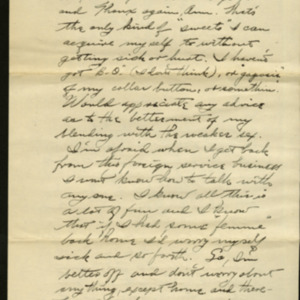 and Thanx again, Ann. That's
the only kind of "sweets" I can
acquire myself to without
getting sick or hurt. I haven't
got "B.O." (I don't think), or
of my collar button, or somethin.
Would appreciate any advice
as to the betterment of my
blending with the weaker sex.
I'm afraid when I get back
from this foreign service business
I won't know how to talk with
any one. I know all this is
a lot of fun and I know
that "if I had some femme"
back home I'd worry myself
sick and so forth. So, I'm
better off and don't worry about
anything, except home and there